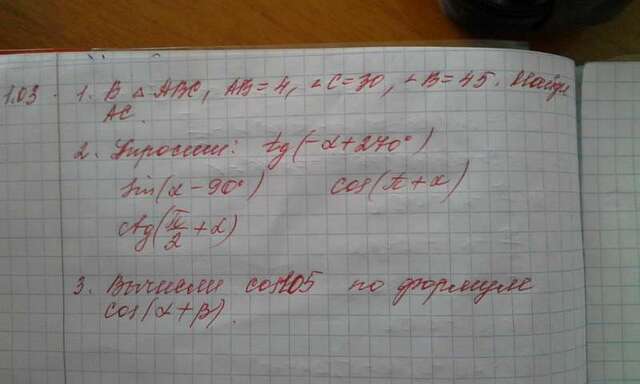 1.03. 1. В △ ABC, AB = 4, ∠C = 30, ∠B = 45. Найди
AC.
2. Упрости: tg(-α + 270°)
sin(α - 90°) cos(π + α)
ctg(π/2 + α)
3. Вычисли cos105 по формуле
cos(α + β).